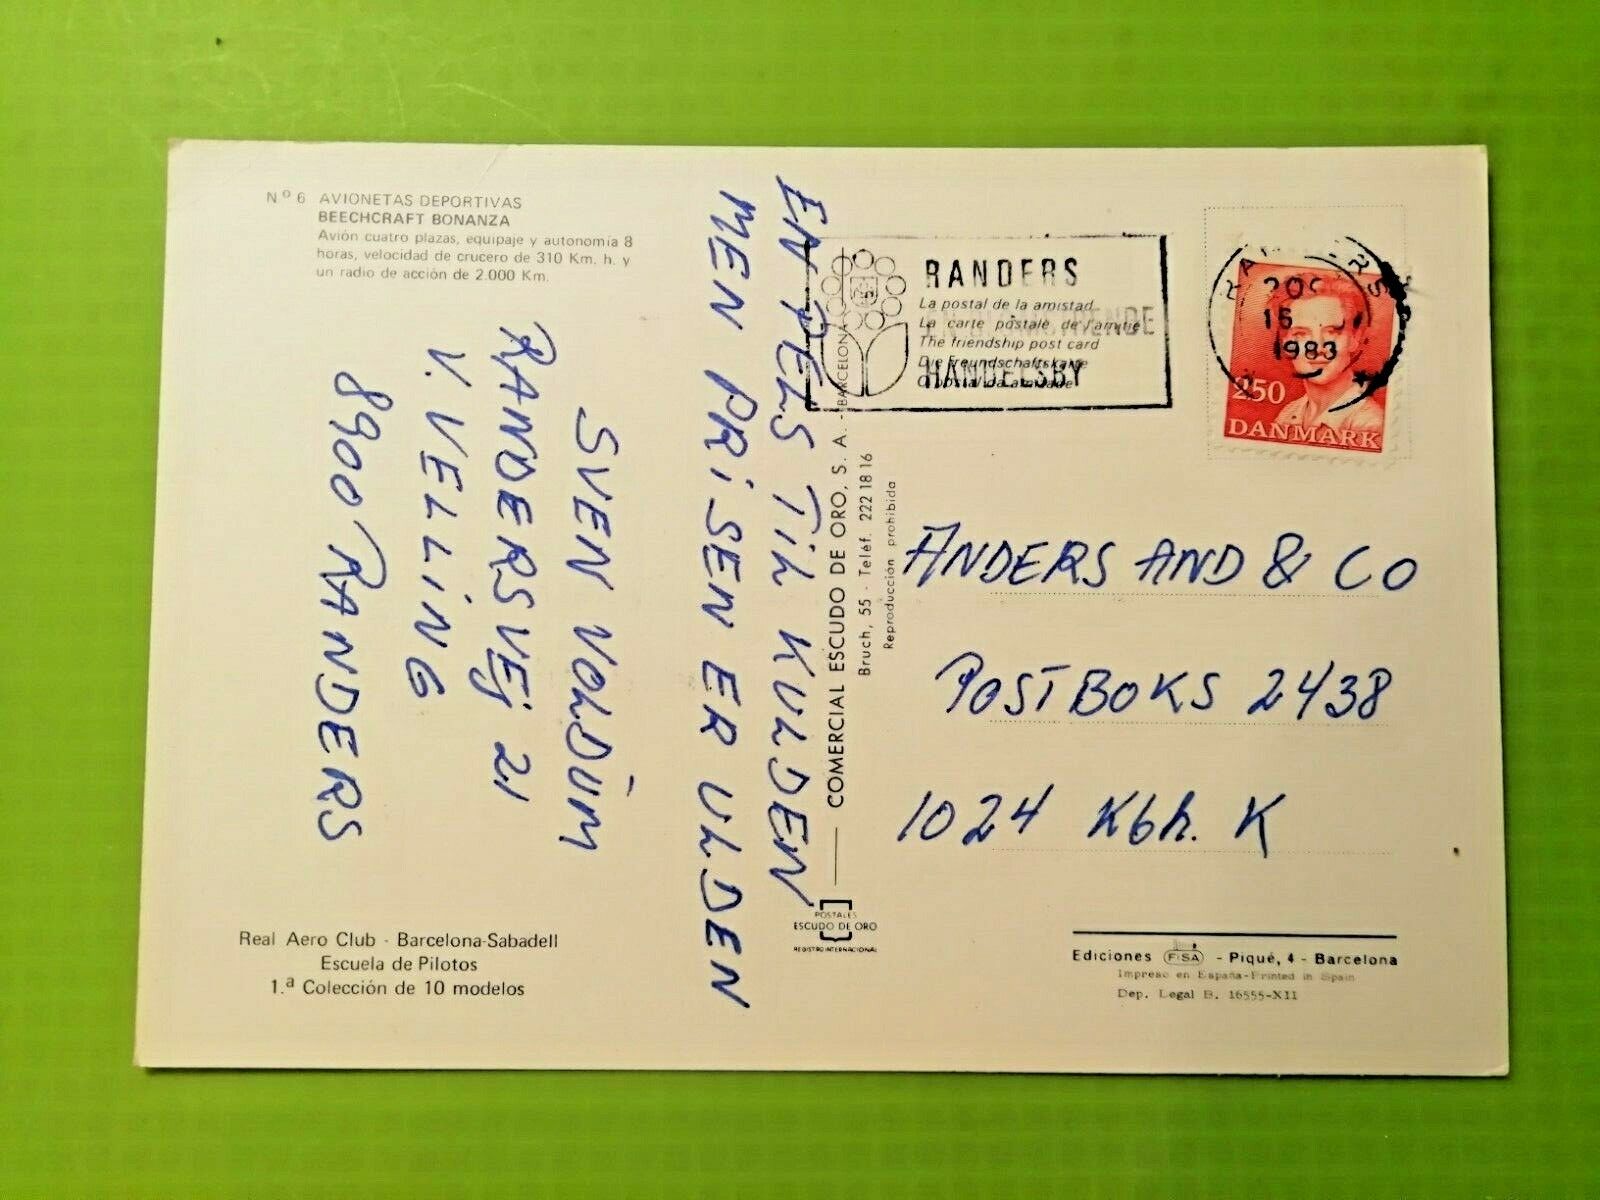 Nº 6 AVIONETAS DEPORTIVAS
BEECHCRAFT BONANZA
Avión cuatro plazas, equipaje y autonomía 8
horas, velocidad de crucero de 310 Km. h. y
un radio de acción de 2.000 Km.
EN PELS TIL KULDEN
MEN PRiSEN ER ULDEN
SVEN VOLDUM
RANDERSVEJ 21
V. VELLiNG
8900 RANDERS
Real Aero Club - Barcelona-Sabadell
Escuela de Pilotos
1.ª Colección de 10 modelos
COMERCIAL ESCUDO DE ORO, S. A. - BARCELONA
Bruch, 55 - Teléf. 222 18 16
Reproducción prohibida
POSTALES
ESCUDO DE ORO
REGISTRO INTERNACIONAL
RANDERS
La postal de la amistad
La carte postale de l'amitié
The friendship post card
Die Freundschaftskarte
O postal da amizade
HANDELSBY
RANDERS
15
1983
250
DANMARK
ANDERS AND & CO
POSTBOKS 2438
1024 Kbh. K
Ediciones FISA - Piqué, 4 - Barcelona
Impreso en España-Printed in Spain
Dep. Legal B. 16555-XII